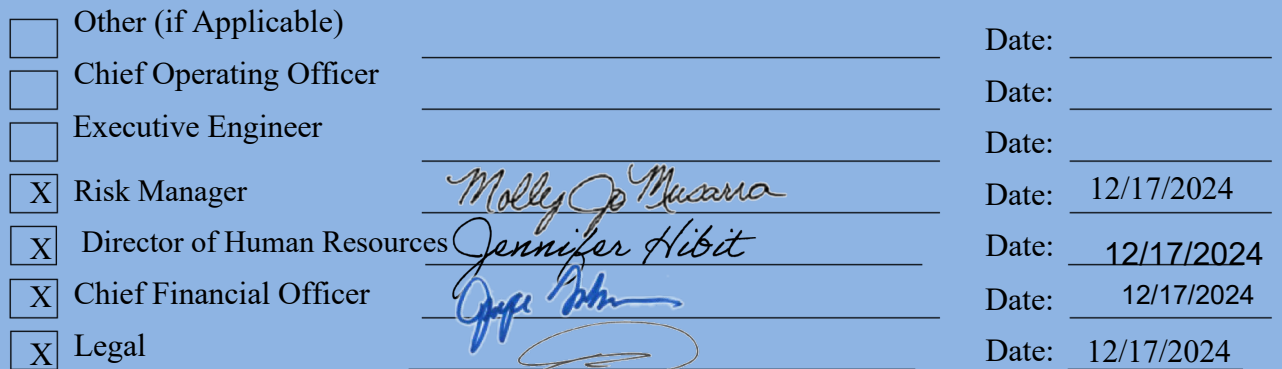 Other (if Applicable) Date:
Chief Operating Officer Date:
Executive Engineer Date:
X Risk Manager Molly Jo Musarra Date: 12/17/2024
X Director of Human Resources Jennifer Hibit Date: 12/17/2024
X Chief Financial Officer Date: 12/17/2024
X Legal Date: 12/17/2024